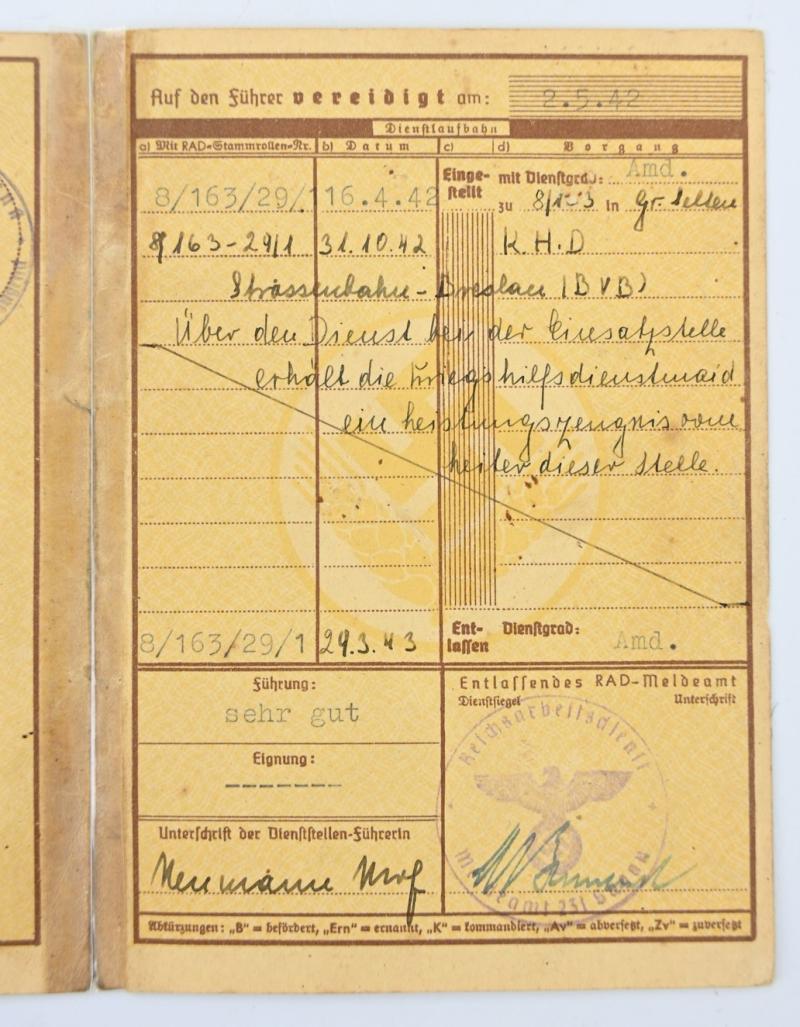 Auf den Führer vereidigt am: 2.5.42
Dienstlaufbahn
a) Mit RAD-Stammrollen-Nr. b) Datum c) d) Vorgang
8/163/29/1 16.4.42 Einge-stellt mit Dienstgrad: Amd.
zu in Gr. Selten
8/163-29/1 31.10.42 K.H.D
Strassenbahn-Breslau (BVB)
Über den Dienst bei der Einsatzstelle
erhält die Kriegshilfsdienstmaid
ein Leistungszeugnis vom
Leiter dieser Stelle.
8/163/29/1 29.3.43 Ent-lassen Dienstgrad: Amd.
Führung:
sehr gut
Eignung:
-------
Unterschrift der Dienststellen-Führerin
Neumann
Entlassendes RAD-Meldeamt
Dienstsiegel Unterschrift
Reichsarbeitsdienst
Meldeamt 231
Abkürzungen: „B" = befördert, „Ern" = ernannt, „K" = kommandiert, „Av" = abversetzt, „Zv" = zuversetzt